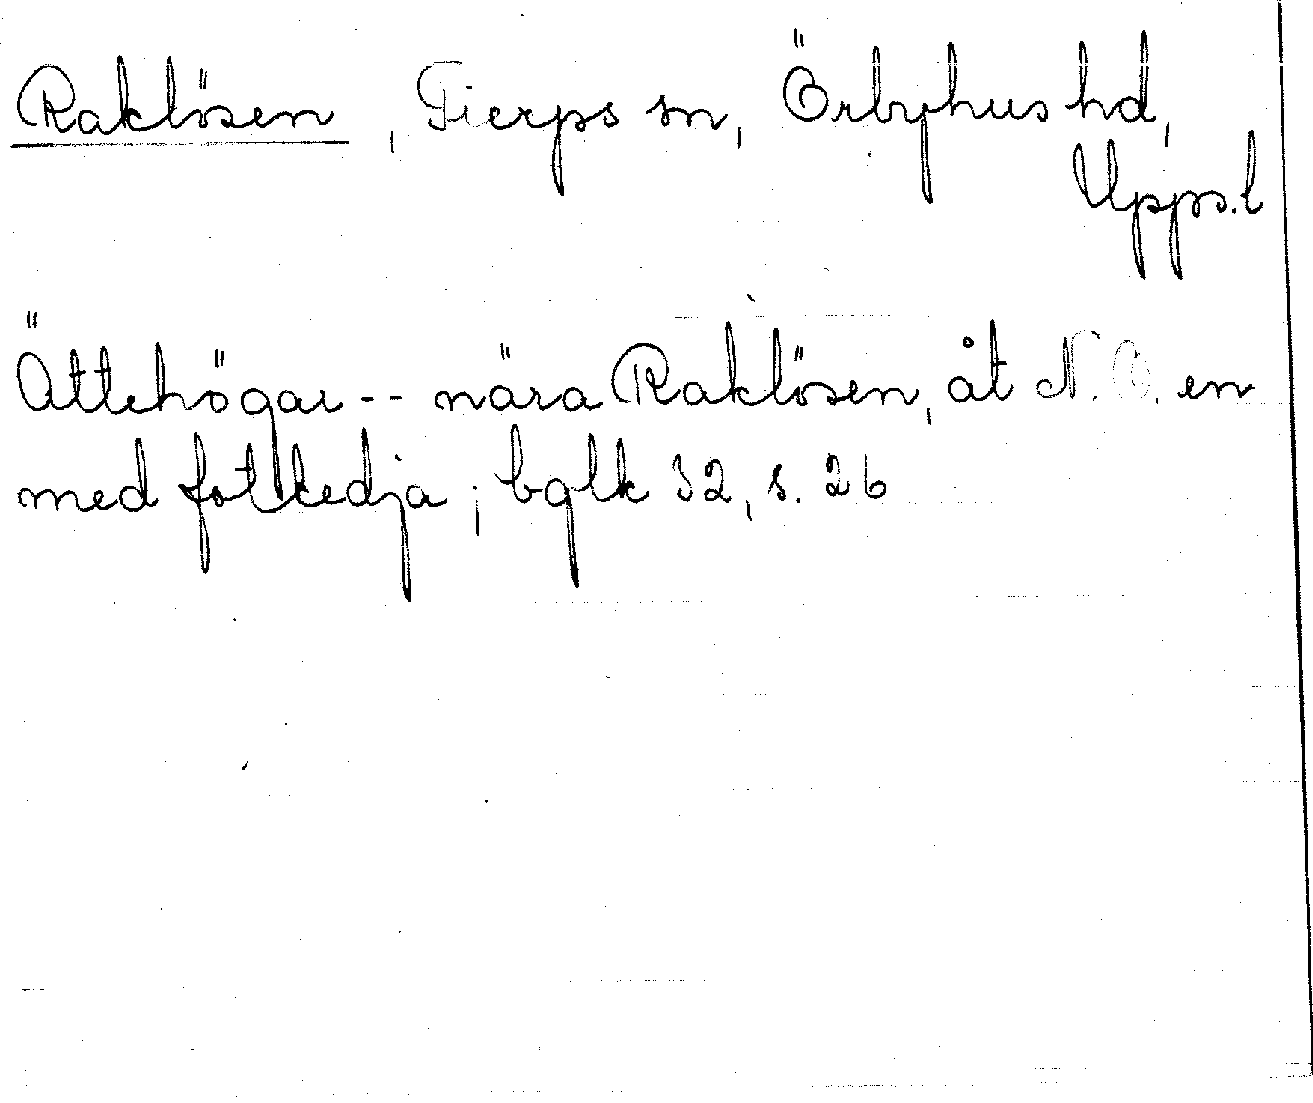 Raklösen, Tierps sn, Örbyhus hd,
Upps. l
Ättehögar -- nära Raklösen, åt N.O. en
med fotkedja; bglk 32, s. 26